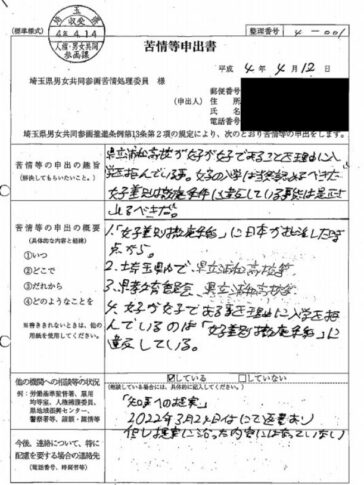 (標準様式)
埼玉県
収受
4.4.14
人権・男女共同
参画課
整理番号 4-001
苦情等申出書
平成 4年 4月 12日
埼玉県男女共同参画苦情処理委員 様
郵便番号
(申出人) 住所
氏名
電話番号
埼玉県男女共同参画推進条例第13条第2項の規定により、次のとおり苦情等の申出をします。
苦情等の申出の趣旨
(解決してもらいたいこと。)
県立浦和高校が女子が女子であることを理由に入
学拒んでいる。女子の入学は当然認めるべきだ
女子差別撤廃条約に違反している事態は是正さ
れるべきだ。
苦情等の申出の概要
(具体的な内容と経緯)
①いつ
②どこで
③だれから
④どのようなことを
※書ききれないときは、他の
用紙を使用してください。
1.「女子差別撤廃条約」に日本が批准した時
点から。
2.埼玉県内で、県立浦和高校等
3.県教育委員会、県立浦和高校等
4.女子が女子である事を理由に入学拒
んでいるのは「女子差別撤廃条約」に
違反している。
他の機関への相談等の状況
例:労働基準監督署、雇用
均等室、人権擁護委員、
県地域振興センター、
警察署等、訴訟・裁判等
☑している □していない
(相談している場合には、具体的に記入してください。)
「知事への提案」
2022年3月2日
にて返事あり
但し提案に沿った内容にはなっていない
今後、連絡について、特に
配慮を要する場合の連絡先
(電話番号、時間帯等)